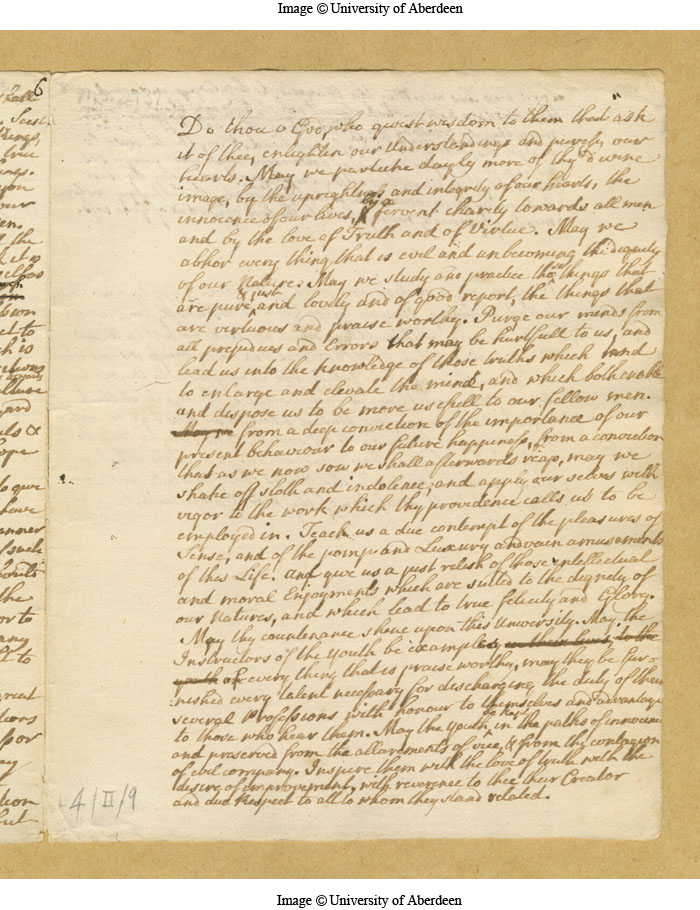 Image © University of Aberdeen
6
Do thou o God, who givest wisdom to them that ask
it of thee, enlighten our Understandings and purify our
hearts. May we partake dayly more of thy divine
image, by the uprightness and integrity of our hearts, the
innocence of our lives, by a fervent charity towards all men
and by the love of Truth and of Virtue. May we
abhor every thing that is evil and unbecoming the dignity
of our Nature. May we study and practice those things that
are pure & just and lovely and of good report, the things that
are vertuous and praise worthy. Purge our minds from
all prejudices and Errors that may be hurtfull to us, and
lead us into the knowledge of those truths which tend
to enlarge and elevate the mind, and which both enable
and dispose us to be more usefull to our fellow men.
May we from a deep conviction of the importance of our
present behaviour to our future happiness, from a conviction
that as we now sow we shall afterwards reap, may we
shake off sloth and indolence, and apply our selves with
vigor to the work which thy providence calls us to be
employed in. Teach us a due contempt of the pleasures of
Sense, and of the pomp and Luxury and vain amusements
of this Life. And give us a just relish of those intellectual
and moral Enjoyments which are suited to the dignity of
our Natures, and which lead to true felicity and Glory.
May thy countenance shine upon this University. May the
Instructors of the Youth be examples to the
youth of every thing that is praise worthy, may they be fur-
nished every talent necessary for discharging the duty of their
several Professions with honour to themselves and advantage
to those who hear them. May the Youth be kept in the paths of innocence
and preserved from the allurements of vice, & from the contagion
of evil company. Inspire them with the love of truth with the
desire of improvement, with reverence to thee our Creator
and due Respect to all to whom they stand related.
4/II/9
Image © University of Aberdeen